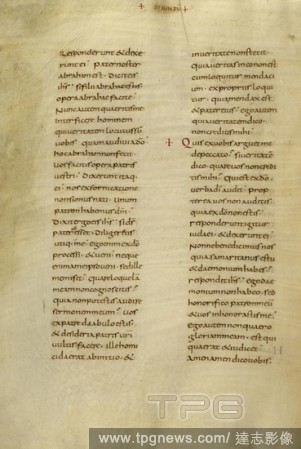 Responderunt & dixe
runt ei pater noster
abraham est dicit eis
ihs si filii abrahae estis
opera abrahae facite
Nunc autem quaeritis me
interficere hominem
qui veritatem locutus sum
vobis quam audivi a do
hoc abraham non fecit
vos facitis opera patris
vestri dixerunt itaq
ei nos ex fornicatione
non sumus nati unum
patrem habemus dm
dixit ergo eis ihs si ds
pater vester diligeretis
utiq me ego enim ex do
processi & veni neque
enim a me ipso veni sed ille
me misit quare loquela
meam non cognoscitis
quia non potestis audire
sermonem meum vos
ex patre diabolo estis
& desideria patris vestri
vultis facere ille homi
cida erat ab initio &
in veritate non stetit
quia veritas in eo non est
cum loquitur mendaci
um ex propriis loqui
tur quia mendax est
& pater eius ego autem
quia veritatem dico
non creditis mihi
Quis ex vobis arguet me
de peccato si veritate
dico quare vos non credi
tis mihi qui est ex do
verba di audit prop
terea vos non auditis
quia ex do non estis
responderunt igitur
iudaei & dixerunt ei
Nonne bene dicimus nos
quia samaritanus es tu
& daemonium habes
respondit ihs ego dae
monium non habeo sed
honorifico patrem meu
& vos inhonoratis me
ego autem non quaero
gloriam meam est qui
quaerat & iudicet
amen amen dico vobis
TPG
www.tpgnews.com/達志影像